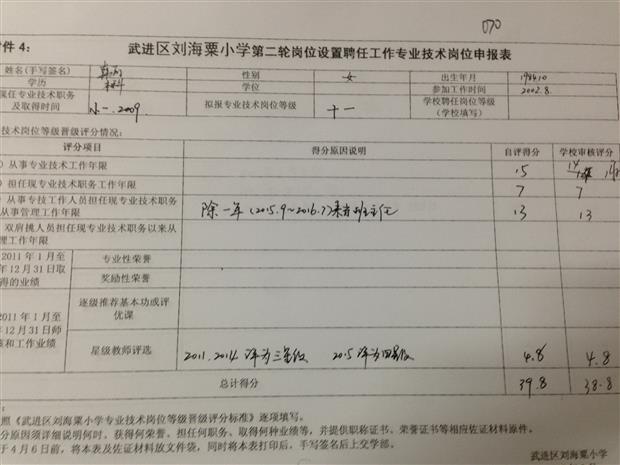 070
件 4：
武进区刘海粟小学第二轮岗位设置聘任工作专业技术岗位申报表
姓名(手写签名) 性别 女 出生年月 1984.10
学历 本科 学位 参加工作时间 2002.8.
现任专业技术职务及取得时间 小一.2009. 拟报专业技术岗位等级 十一 学校聘任岗位等级(学校填写)
技术岗位等级晋级评分情况：
评分项目 得分原因说明 自评得分 学校审核评分
）从事专业技术工作年限 15 14
）担任现专业技术职务工作年限 7 7
）从事专技工作人员担任现专业技术职务
从事管理工作年限 除一年(2015.9~2016.7)未当班主任 13 13
）双肩挑人员担任现专业技术职务以来从
理工作年限
2011 年 1 月至
年 12 月 31 日取
得的业绩
专业性荣誉
奖励性荣誉
2011 年 1 月至
年 12 月 31 日师
核和工作业绩
逐级推荐基本功或评优课
星级教师评选 2011、2014 评为三星级 2015 评为四星级 4.8 4.8
总计得分 39.8 38.8
：
照《武进区刘海粟小学专业技术岗位等级晋级评分标准》逐项填写。
分原因须详细说明何时、获得何荣誉、担任何职务、取得何种业绩等，并提供职称证书、荣誉证书等相应佐证材料原件。
于 4 月 6 日前，将本表及佐证材料放文件袋，同时将本表打印后，手写签名后上交学部。
武进区刘海粟小学